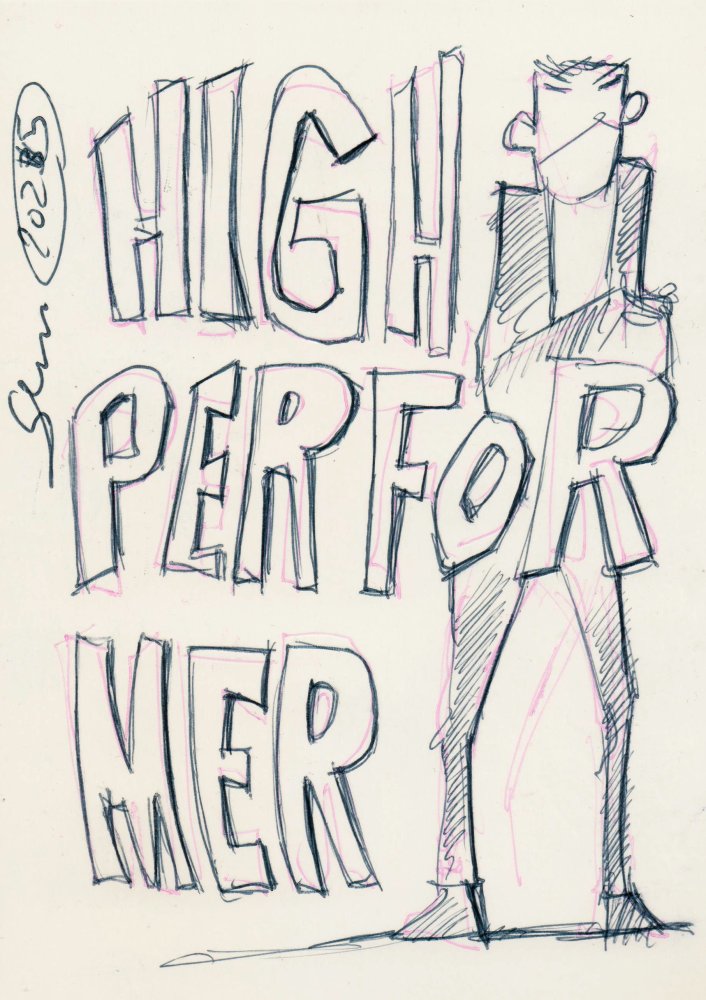 HIGH
PERFOR
MER
2025